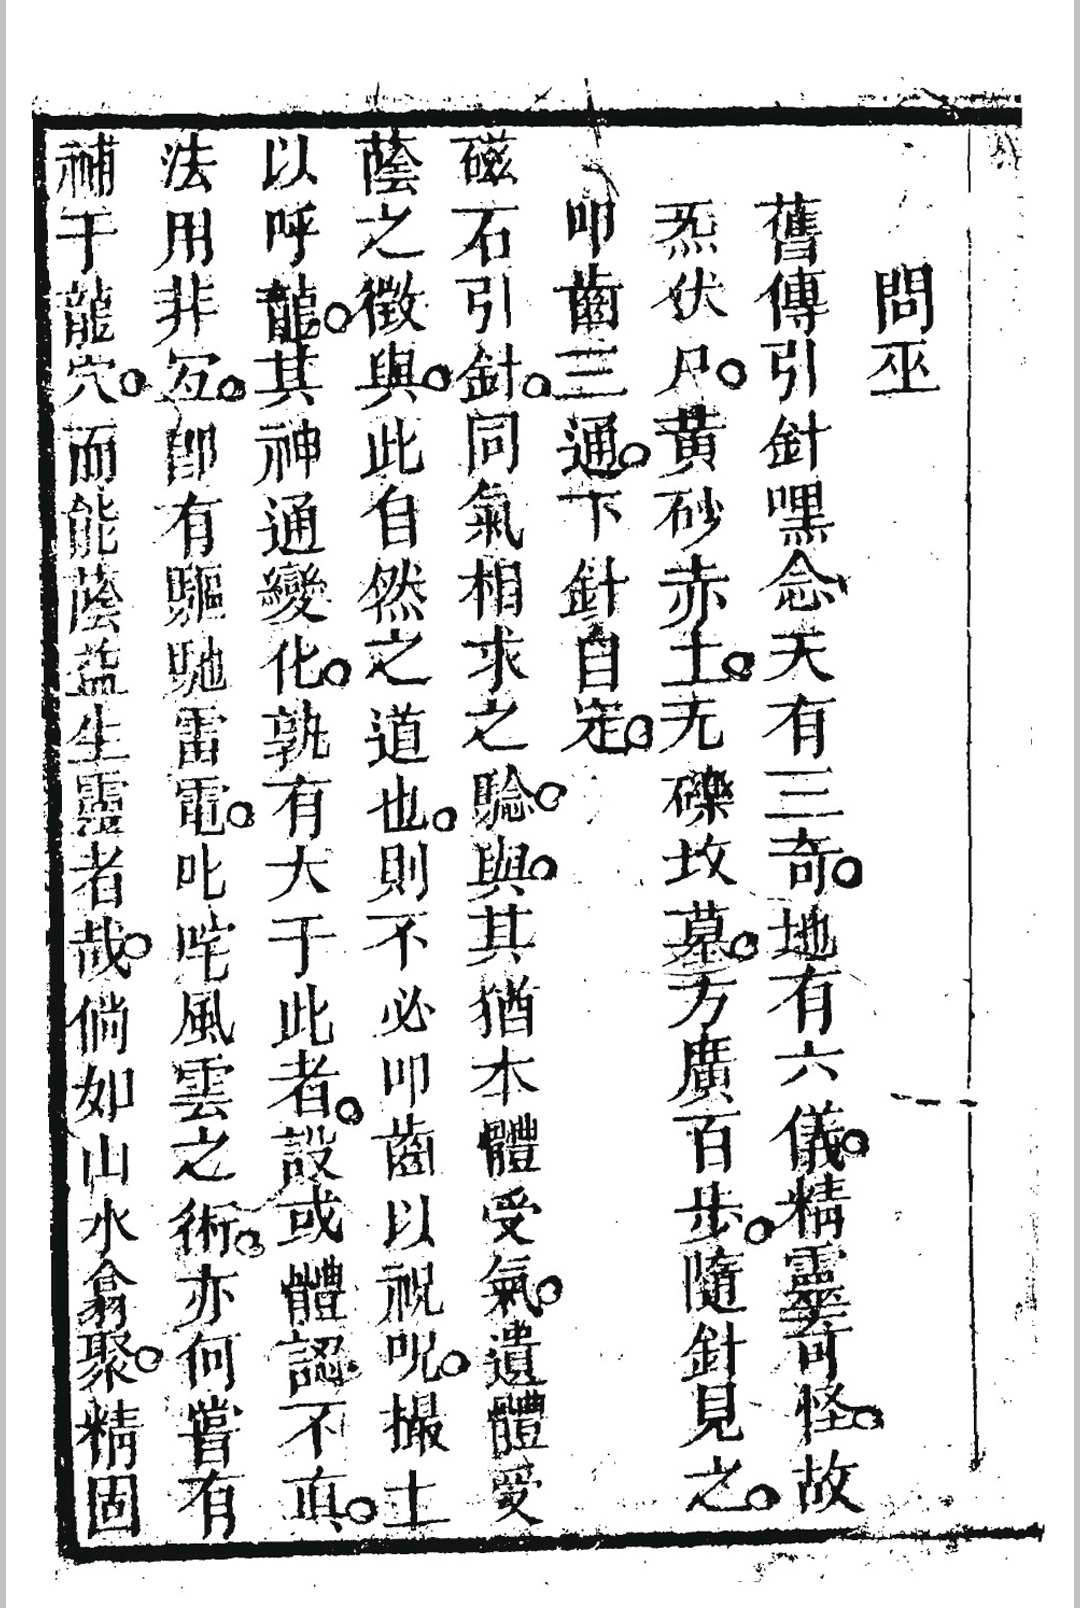 問巫
舊傳引針嘿念天有三奇。地有六儀。精靈奇怪。故
炁伏尸。黃砂赤土。无礫坟墓。方廣百步。隨針見之。
叩齒三通。下針自定。
磁石引針。同氣相求之驗。與。其猶本體受氣。遺體受
蔭之徵與。此自然之道也。則不必叩齒以祝呪。撮土
以呼龍。其神通變化。孰有大于此者。設或體認不真。
法用非宜。卽有驅馳雷電。叱咤風雲之術。亦何嘗有
補于龍穴。而能蔭益生靈者哉。倘如山水翕聚。精固